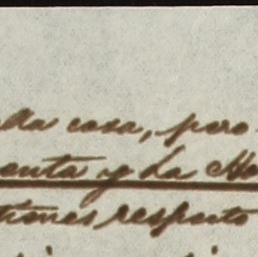 da cosa, pero
enta y La Ha
tiones respecto